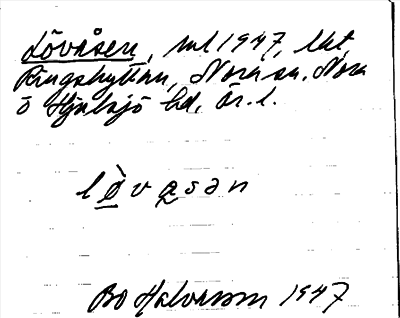 Lövåsen, ml 1947, lht,
Ringshyttan, Nora sn, Nora
o Hjulsjö bd, Ör. l.
lø̀vasən
Bo Halvarson 1947